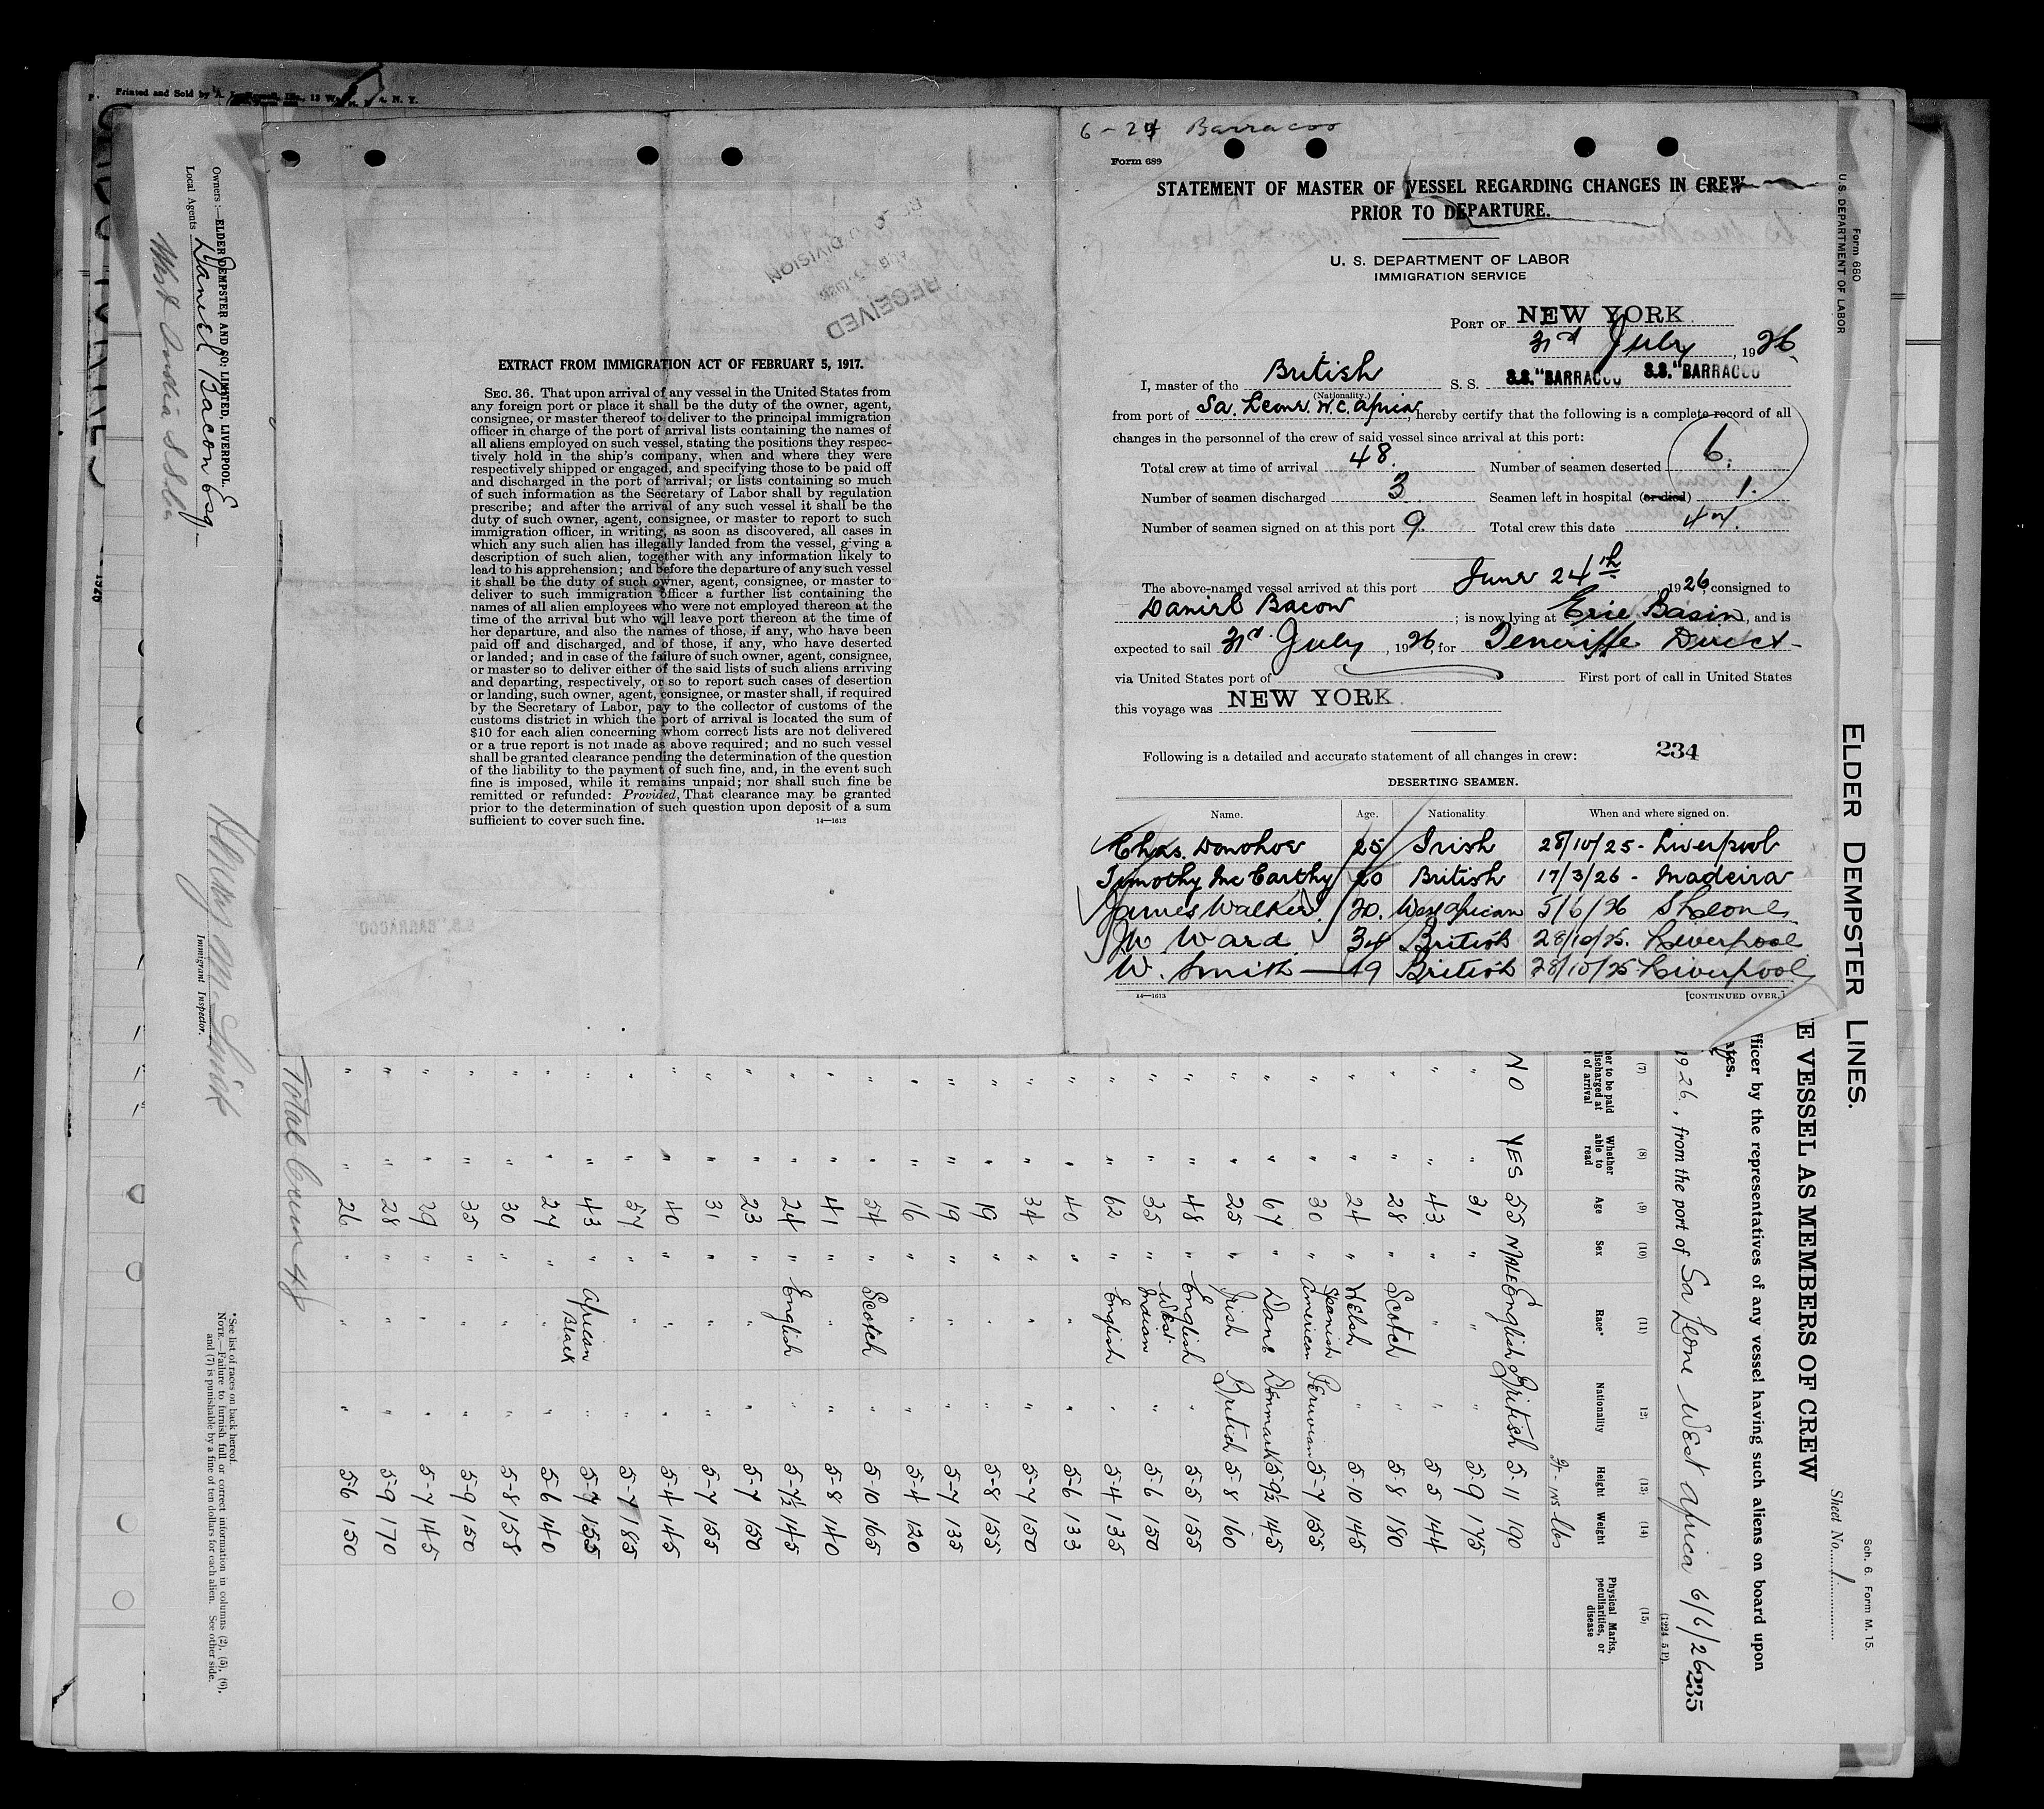 Printed and Sold by A.
6-24 Barracoo
Form 689
STATEMENT OF MASTER OF VESSEL REGARDING CHANGES IN CREW
PRIOR TO DEPARTURE.
U. S. DEPARTMENT OF LABOR
IMMIGRATION SERVICE
PORT OF NEW YORK
3rd July, 1926.
I, master of the British S. S. S.S. "BARRACOO S.S. "BARRACOO
(Nationality.)
from port of Sa. Leone. W.C. Africa, hereby certify that the following is a complete record of all
changes in the personnel of the crew of said vessel since arrival at this port:
Total crew at time of arrival 48. Number of seamen deserted 6.
Number of seamen discharged 3. Seamen left in hospital (or died) 1.
Number of seamen signed on at this port 9. Total crew this date 47.
The above-named vessel arrived at this port June 24th 1926, consigned to
Daniel Bacon; is now lying at Erie Basin, and is
expected to sail 3rd July, 1926 for Teneriffe Direct
via United States port of First port of call in United States
this voyage was NEW YORK.
234
Following is a detailed and accurate statement of all changes in crew:
DESERTING SEAMEN.
Name. Age. Nationality When and where signed on.
Chas. Donohoe 25 Irish 28/10/25 - Liverpool
Timothy McCarthy 20 British 17/3/26 - Madeira
James Walker. 20. West African 5/6/26 S Leone
W Ward 34 British 28/10/25. Liverpool
W. Smith 49 British 28/10/25 Liverpool
14—1613 [CONTINUED OVER.]
RECEIVED
DIVISION
EXTRACT FROM IMMIGRATION ACT OF FEBRUARY 5, 1917.
SEC. 36. That upon arrival of any vessel in the United States from
any foreign port or place it shall be the duty of the owner, agent,
consignee, or master thereof to deliver to the principal immigration
officer in charge of the port of arrival lists containing the names of
all aliens employed on such vessel, stating the positions they respec-
tively hold in the ship's company, when and where they were
respectively shipped or engaged, and specifying those to be paid off
and discharged in the port of arrival; or lists containing so much
of such information as the Secretary of Labor shall by regulation
prescribe; and after the arrival of any such vessel it shall be the
duty of such owner, agent, consignee, or master to report to such
immigration officer, in writing, as soon as discovered, all cases in
which any such alien has illegally landed from the vessel, giving a
description of such alien, together with any information likely to
lead to his apprehension; and before the departure of any such vessel
it shall be the duty of such owner, agent, consignee, or master to
deliver to such immigration officer a further list containing the
names of all alien employees who were not employed thereon at the
time of the arrival but who will leave port thereon at the time of
her departure, and also the names of those, if any, who have been
paid off and discharged, and of those, if any, who have deserted
or landed; and in case of the failure of such owner, agent, consignee,
or master so to deliver either of the said lists of such aliens arriving
and departing, respectively, or so to report such cases of desertion
or landing, such owner, agent, consignee, or master shall, if required
by the Secretary of Labor, pay to the collector of customs of the
customs district in which the port of arrival is located the sum of
$10 for each alien concerning whom correct lists are not delivered
or a true report is not made as above required; and no such vessel
shall be granted clearance pending the determination of the question
of the liability to the payment of such fine, and, in the event such
fine is imposed, while it remains unpaid; nor shall such fine be
remitted or refunded: Provided, That clearance may be granted
prior to the determination of such question upon deposit of a sum
sufficient to cover such fine. 14—1613
Form 680
U.S. DEPARTMENT OF LABOR
Sch. 6. Form M. 15.
ELDER DEMPSTER LINES.
Sheet No. 1
E VESSEL AS MEMBERS OF CREW
fficer by the representatives of any vessel having such aliens on board upon
ates.
1926, from the port of Sa Leone West Africa 6/6/26 235
(1224 5 P).
(7) (8) (9) (10) (11) (12) (13) (14) (15)
her to be paid discharged at of arrival | Whether able to read | Age | Sex | Race* | Nationality | Height | Weight | Physical Marks, peculiarities, or disease
Ft - Ins lbs
NO YES 55 MALE English British 5-11 190
" " 31 " " " 5-9 175
" " 43 " " " 5-5 144
" " 28 " Scotch " 5-8 180
" " 24 " Welsh " 5-10 145
" " 30 " Spanish American Peruvian 5-7 155
" " 67 " Dane Denmark 5-9½ 145
" " 25 " Irish British 5-8 160
" " 48 " English " 5-5 155
" " 35 " West Indian " 5-6 150
" " 62 " English " 5-4 135
" " 40 " " " 5-6 133
" " 34 " " " 5-7 150
" " 19 " " " 5-8 155
" " 19 " " " 5-7 135
" " 16 " " " 5-4 120
" " 54 " Scotch " 5-10 165
" " 41 " " " 5-8 140
" " 24 " English " 5-7½ 145
" " 23 " " " 5-7 150
" " 31 " " " 5-7 155
" " 40 " " " 5-4 145
" " 57 " " " 5-7 185
" " 43 " African Black " 5-7 155
" " 27 " " " 5-6 140
" " 30 " " " 5-8 158
" " 35 " " " 5-9 150
" " 29 " " " 5-7 145
" " 28 " " " 5-9 170
" " 26 " " " 5-6 150
Total Crew 48
Owners:—ELDER DEMPSTER AND CO: LIMITED, LIVERPOOL.
Local Agents Daniel Bacon Esq
West India S S Co
Immigrant Inspector.
*See list of races on back hereof.
NOTE.—Failure to furnish full or correct information in columns (2), (5), (6),
and (7) is punishable by a fine of ten dollars for each alien. See other side.